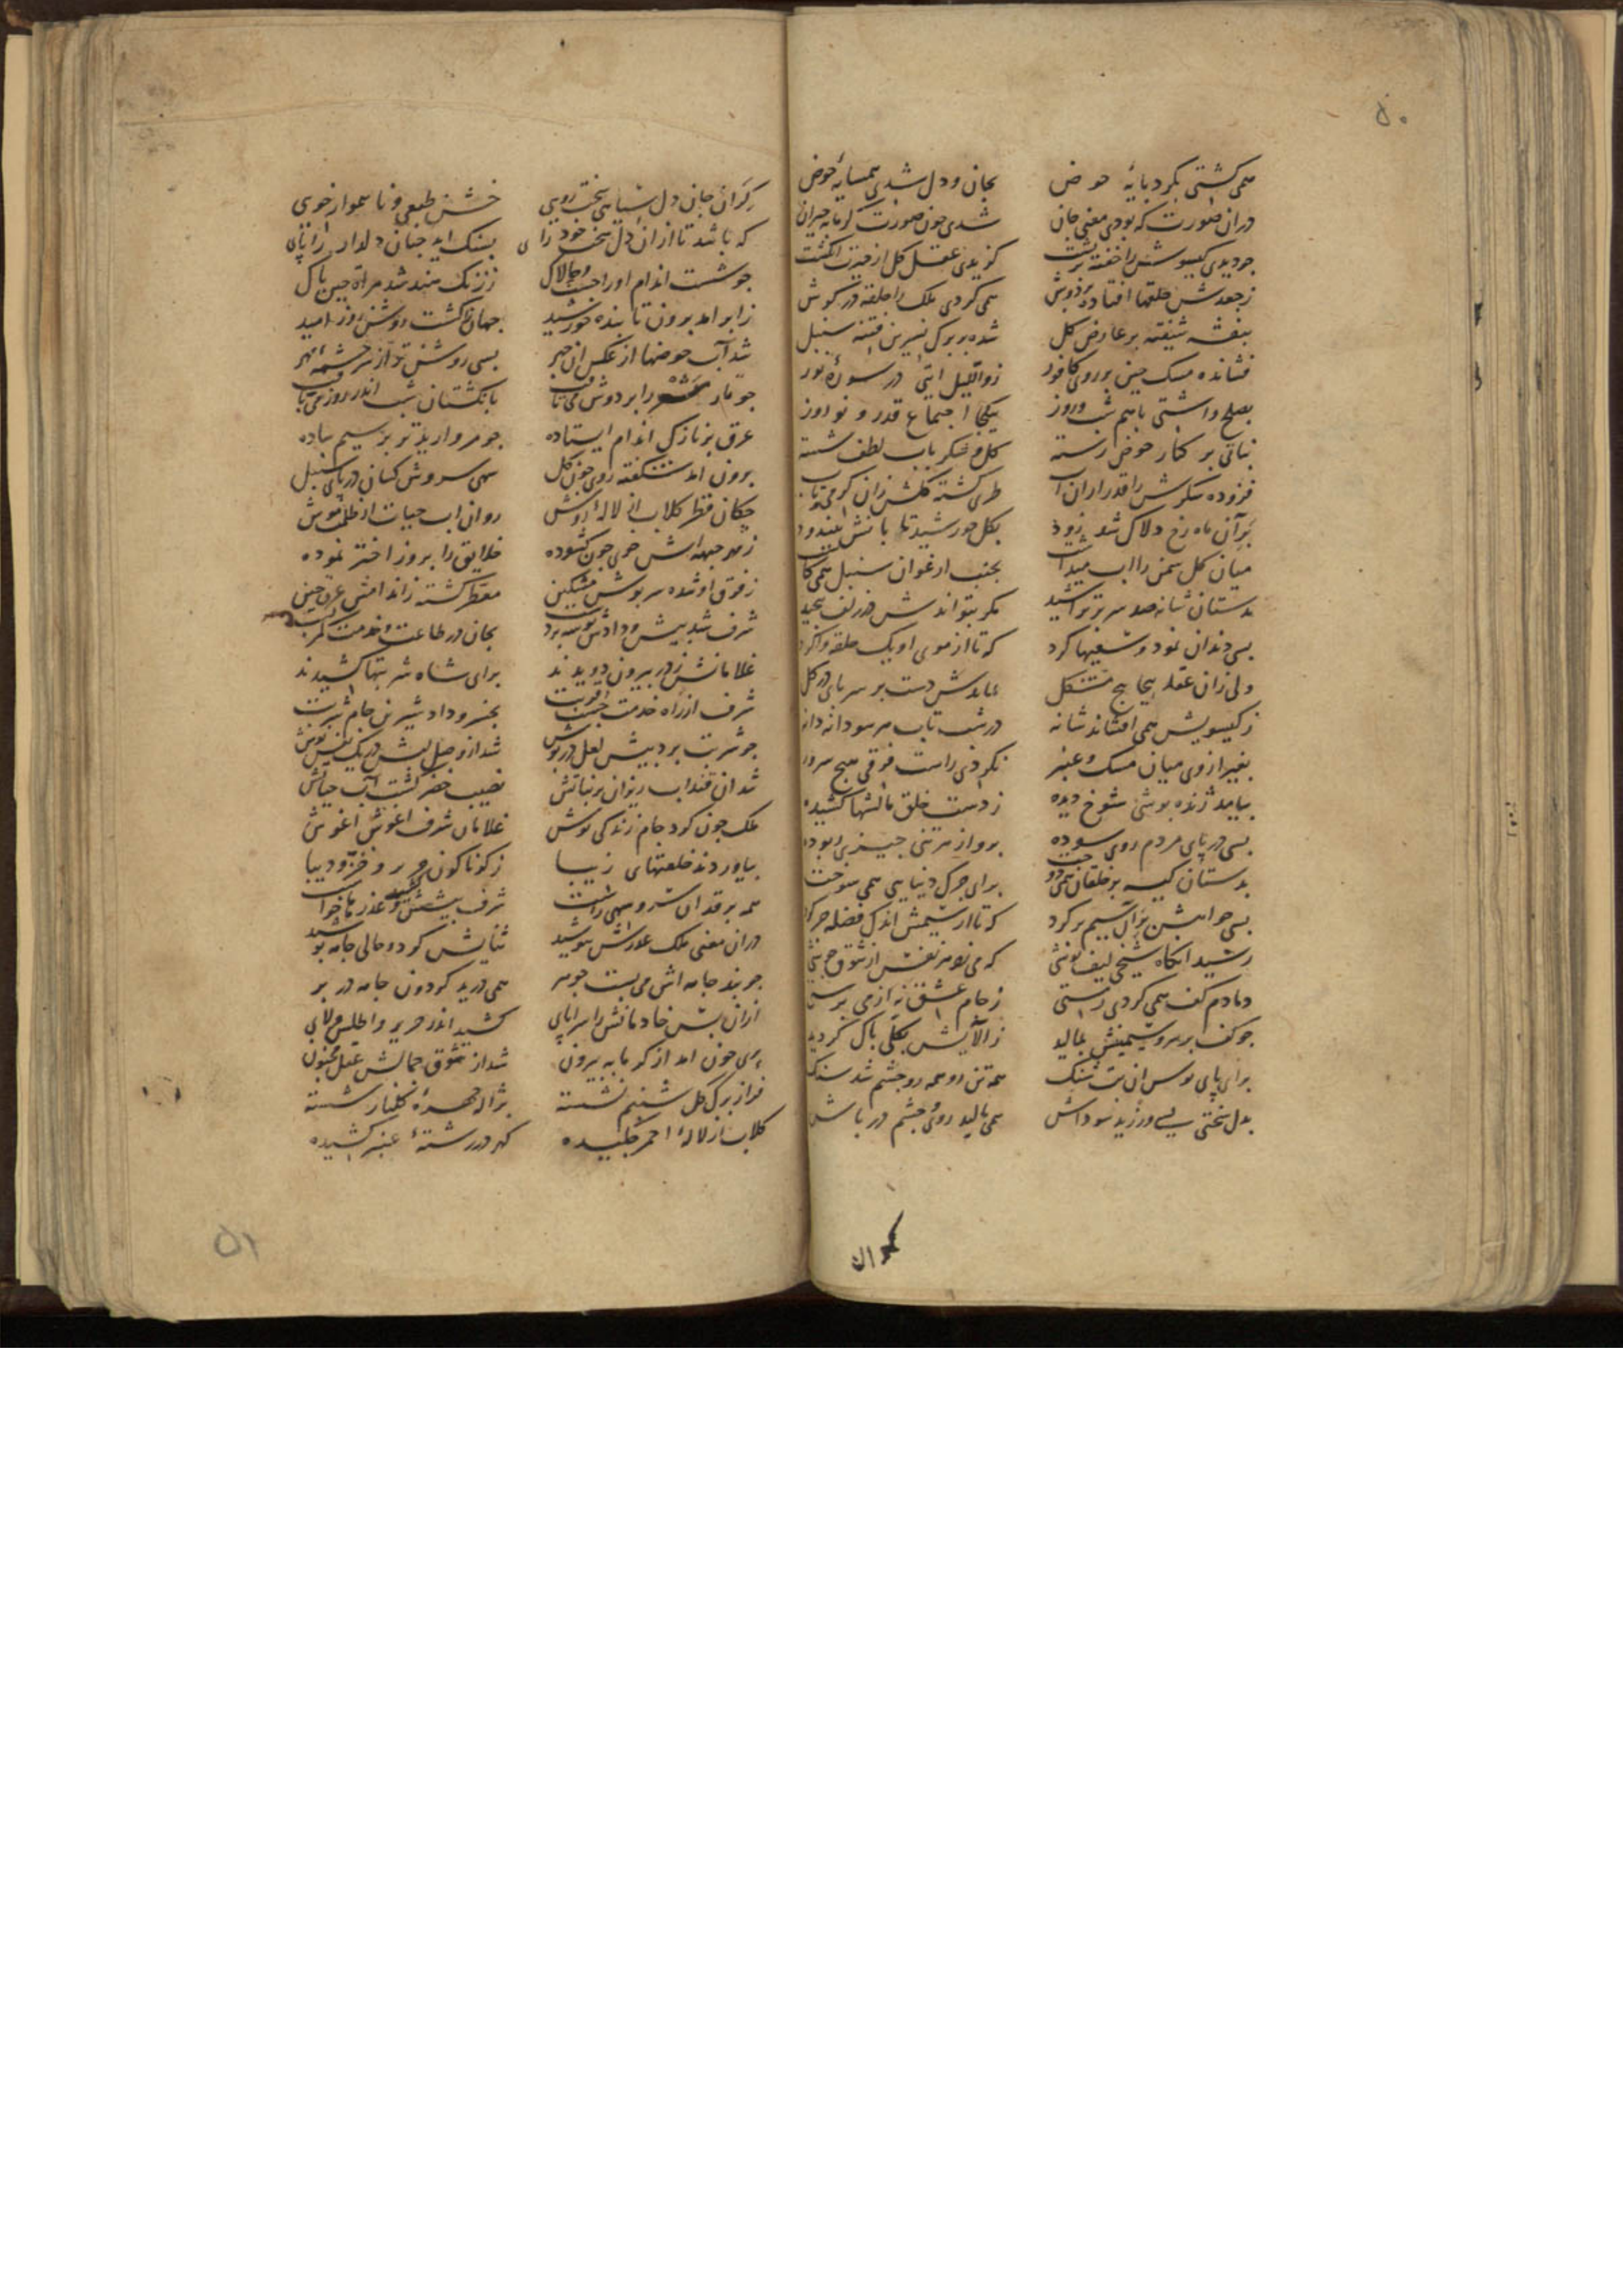 ۵۰
همی کشتی بکرد بایهٔ حوض بجان و دل شدی همسایهٔ حوض
دران صورت که بودی معنی جان شدی جون صورت کرمابه حیران
جو دیدی کیسوش را خفته بر بشت کزیدی عقل کل از غیرت انکشت
زجعدش حلقها افتاده بر دوش همی کردی ملک را حلقه در کوش
بنفشه شیفته بر عارض کل شده بر برک نسرین فتنه سنبل
فشانده مسک جینی بر روی کافور زواللیل ایتی در سورهٔ نور
بصلح و اشتی باهم شب و روز بیکجا اجتماع قدر و نوروز
نباتی بر کنار حوض رسته کل و شکر باب لطف شسته
فزوده شکرش را قدر ازان اب طری کشته کلش زان کرمی و تاب
بر آن ماه رخ دلاک شد زود بکل خورشید تابانش بیندود
میان کل سمن را اب میداشت بجنب ارغوان سنبل همی کاشت
بدستان شانه صد سر بر تراشید مکر بتواند ش در زلف بیجید
بسی دندان نمود و سعیها کرد که تا از موی او یک حلقه وا کرد
ولی زان عقد بیجابیج مشکل بماندش دست بر سر بای در کل
ز کیسویش همی افشاند شانه در شب تاب هر سو دانه دانه
بغیر از وی میان مسک و عنبر نکردی راست فرقی هیج سرور
بیامد ژنده بوشی شوخ دیده ز دست خلق مالشها کشیده
بسی در بای مردم روی سوده برو از هر تنی جیزی ربوده
بدستان کیسه بر خلقان همی دوخت برای جرک دنیایی همی سوخت
بسی خواهش بر آن سیم بر کرد که تا از سیمش اندک فضله جر کرد
رسید انکاه شیخی لیف بوشی که می زد هر نفس از شوق جوشی
دمادم کف همی کردی ز مستی ز جام عشق نه از می برستی
جو کف بر سرو سیمینش بمالید ز الایش بکلی باک کردید
برای بای بوس ان بت شنک همه تن رو همه رو جشم شد سنک
بدل سختی بسی ورزید سوداش همی مالید روی و جشم در باش
کران
کران جان و دل سیاهی سخت رویی خشن طبعی و ناهموار خویی
که باشد تا ازان دل سخت خود رای بسنک اید جنان دلدار را بای
جو شست اندام او را جست و جالاک ز زنک سند شد مراة جین باک
ز ابر امد برون تابنده خورشید جهان را کشت روشن روز امید
شد آب حوضها از عکس ان جهر بسی روشن تر از سرجشمهٔ مهر
جو تار شعر را بر دوش می تافت بانکشتان شب اندر روز می بافت
عرق بر نازکی اندام ایستاده جو مروارید تر بر سیم ساده
برون امد شکفته روی جون کل سهی سروش کشان در بای سنبل
جکان قطر کلاب از لاله اروش روان اب حیات از ظلمت موش
ز مه جبهه اش خوی جون کشوده خلایق را بروز اختر نموده
ز فرق او شده سر بوش مشکین معطر کشته ز اندامش عرق جین
شرف شد بیش و دادش بوسه بر دست بجان در طاعت و خدمت کمر بست
غلامانش ز در بیرون دویدند برای شاه شربتها کشیدند
شرف از راه خدمت جست قربت بخسرو داد شیرین جام شربت
جو شربت برد بیش لعل در بوش شد از وصل لبش در یک نفس نوش
شد ان قنداب ریزان بر نباتش نصیب خضر کشت آب حیاتش
ملک جون کرد جام زندکی نوش غلامان شرف اغوش اغوش
بیاوردند خلعتهای زیبا ز کوناکون حریر و خز و دیبا
همه بر قد ان سرو سهی راست شرف بیشش کشید و عذرها خواست
دران معنی ملک عذرش نیوشید ثنایش کرد و حالی جامه بوشید
جو بند جامه اش می بست جوهر همی درید کردون جامه در بر
ازان بس خادمانش را سرابای کشید اندر حریر و اطلس و لای
بری جون امد از کرمابه بیرون شد از شوق جمالش عقل مجنون
فراز برک کل شبنم نشسته بژاله جهرهٔ کلنار شسته
کلاب از لالهٔ احمر جکیده کهر در رشتهٔ عنبر کشیده
۵۱